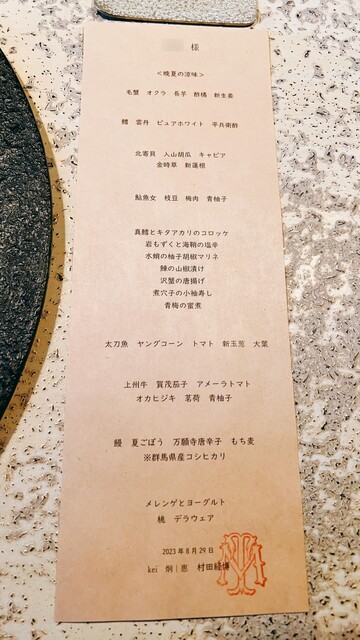 様
＜晩夏の涼味＞
毛蟹 オクラ 長芋 酢橘 新生姜
鱧 雲丹 ピュアホワイト 平兵衛酢
北寄貝 入山胡瓜 キャビア
金時草 新蓮根
鮎魚女 枝豆 梅肉 青柚子
真鱈とキタアカリのコロッケ
岩もずくと海鞘の塩辛
水蛸の柚子胡椒マリネ
鰊の山椒漬け
沢蟹の唐揚げ
煮穴子の小袖寿し
青梅の蜜煮
太刀魚 ヤングコーン トマト 新玉葱 大葉
上州牛 賀茂茄子 アメーラトマト
オカヒジキ 茗荷 青柚子
鰻 夏ごぼう 万願寺唐辛子 もち麦
※群馬県産コシヒカリ
メレンゲとヨーグルト
桃 デラウェア
2023年8月29日
kei 炯｜恵 村田経